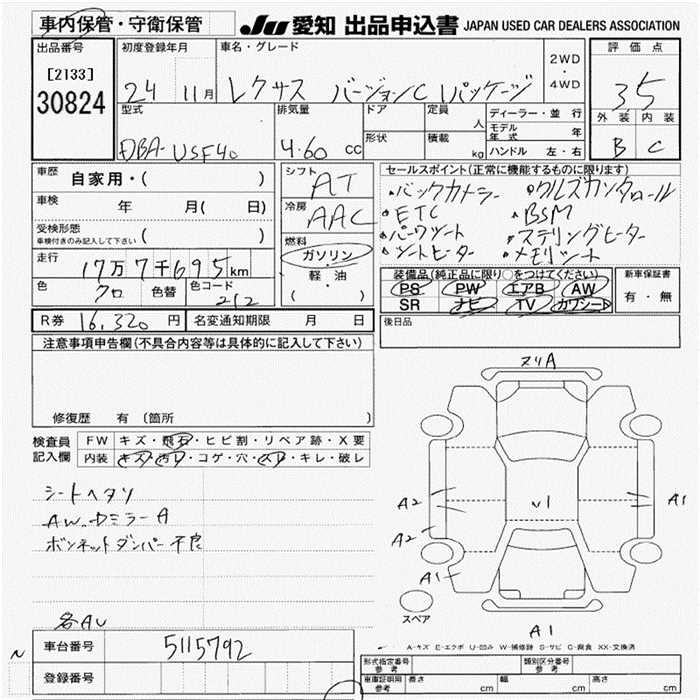 車内保管・守衛保管
JU 愛知 出品申込書 JAPAN USED CAR DEALERS ASSOCIATION
出品番号
[2133]
30824
初度登録年月
24 11月
車名・グレード
レクサス バージョンC Iパッケージ
2WD
・
4WD
評価点
3.5
外装 内装
B C
型式
DBA-USF40
排気量
4.60 cc
ドア
形状
定員 人
積載 kg
ディーラー・並行
モデル年式 年
ハンドル 左・右
車歴 自家用・( )
車検 年 月( 日)
受検形態
車検付きのみ記入して下さい ( )
走行 17万7千695km
色 クロ 色替 色コード 212
シフト
AT
冷房
AAC
燃料
ガソリン
・
軽・油
・
( )
セールスポイント(正常に機能するものに限ります)
・バックカメラー ・クルズカンタロール
・ETC ・BSM
・パーワシート ・ステリングヒーター
・シートヒーター ・メモリシート
装備品(純正品に限り○をつけてください)
PS PW エアB AW
SR ナビ TV カワシート
新車保証書
有・無
R券 16,320円 名変通知期限 月 日
後日品
注意事項申告欄(不具合内容等は具体的に記入して下さい)
修復歴 有 (箇所 )
検査員記入欄
FW キズ・飛石・ヒビ割・リペア跡・X要
内装 キズ・汚レ・コゲ・穴・スレ・キレ・破レ
シートヘタリ
AW.ドミラーA
ボンネットダンパー不良
各AU
ヌリA
A2
A2
A1
A1
A1
スペア
車台番号 5115792
登録番号
A-キズ E-エクボ U-凹み W-補修跡 S-サビ C-腐食 XX-交換済
型式指定番号 参考
類別区分番号 参考
車庫証明用 参考 長さ cm 幅 cm 高さ cm